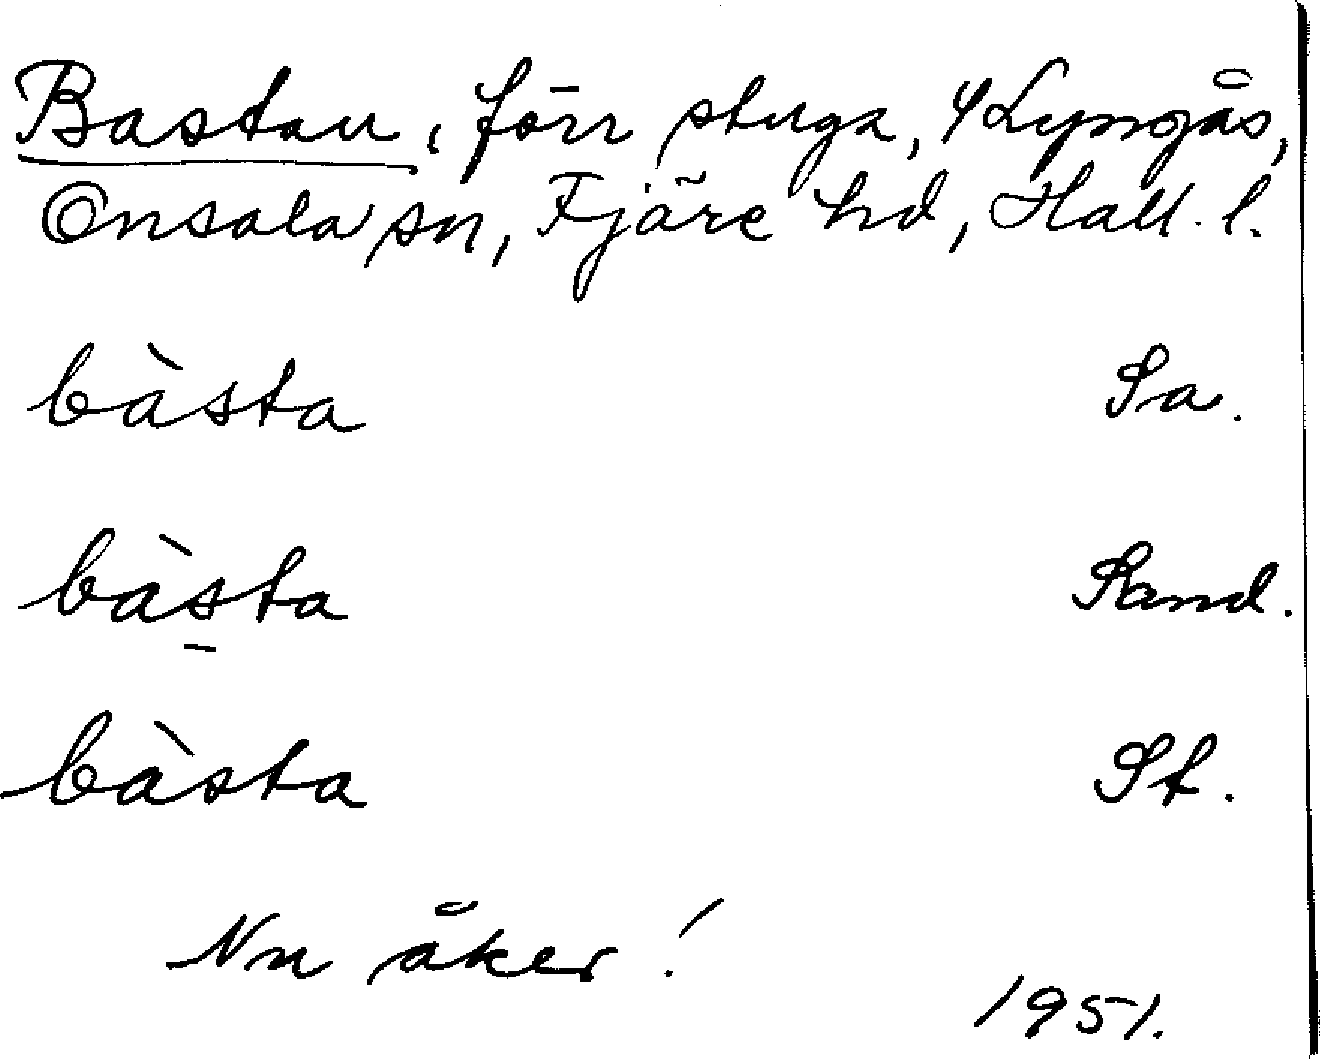 Bastan, förr stuga, 4 Lyngås,
Onsala sn, Fjäre hd, Hall. l.
bàsta Sa.
bàs̱ta Sand.
bàsta St.
Nu åker!
1951.